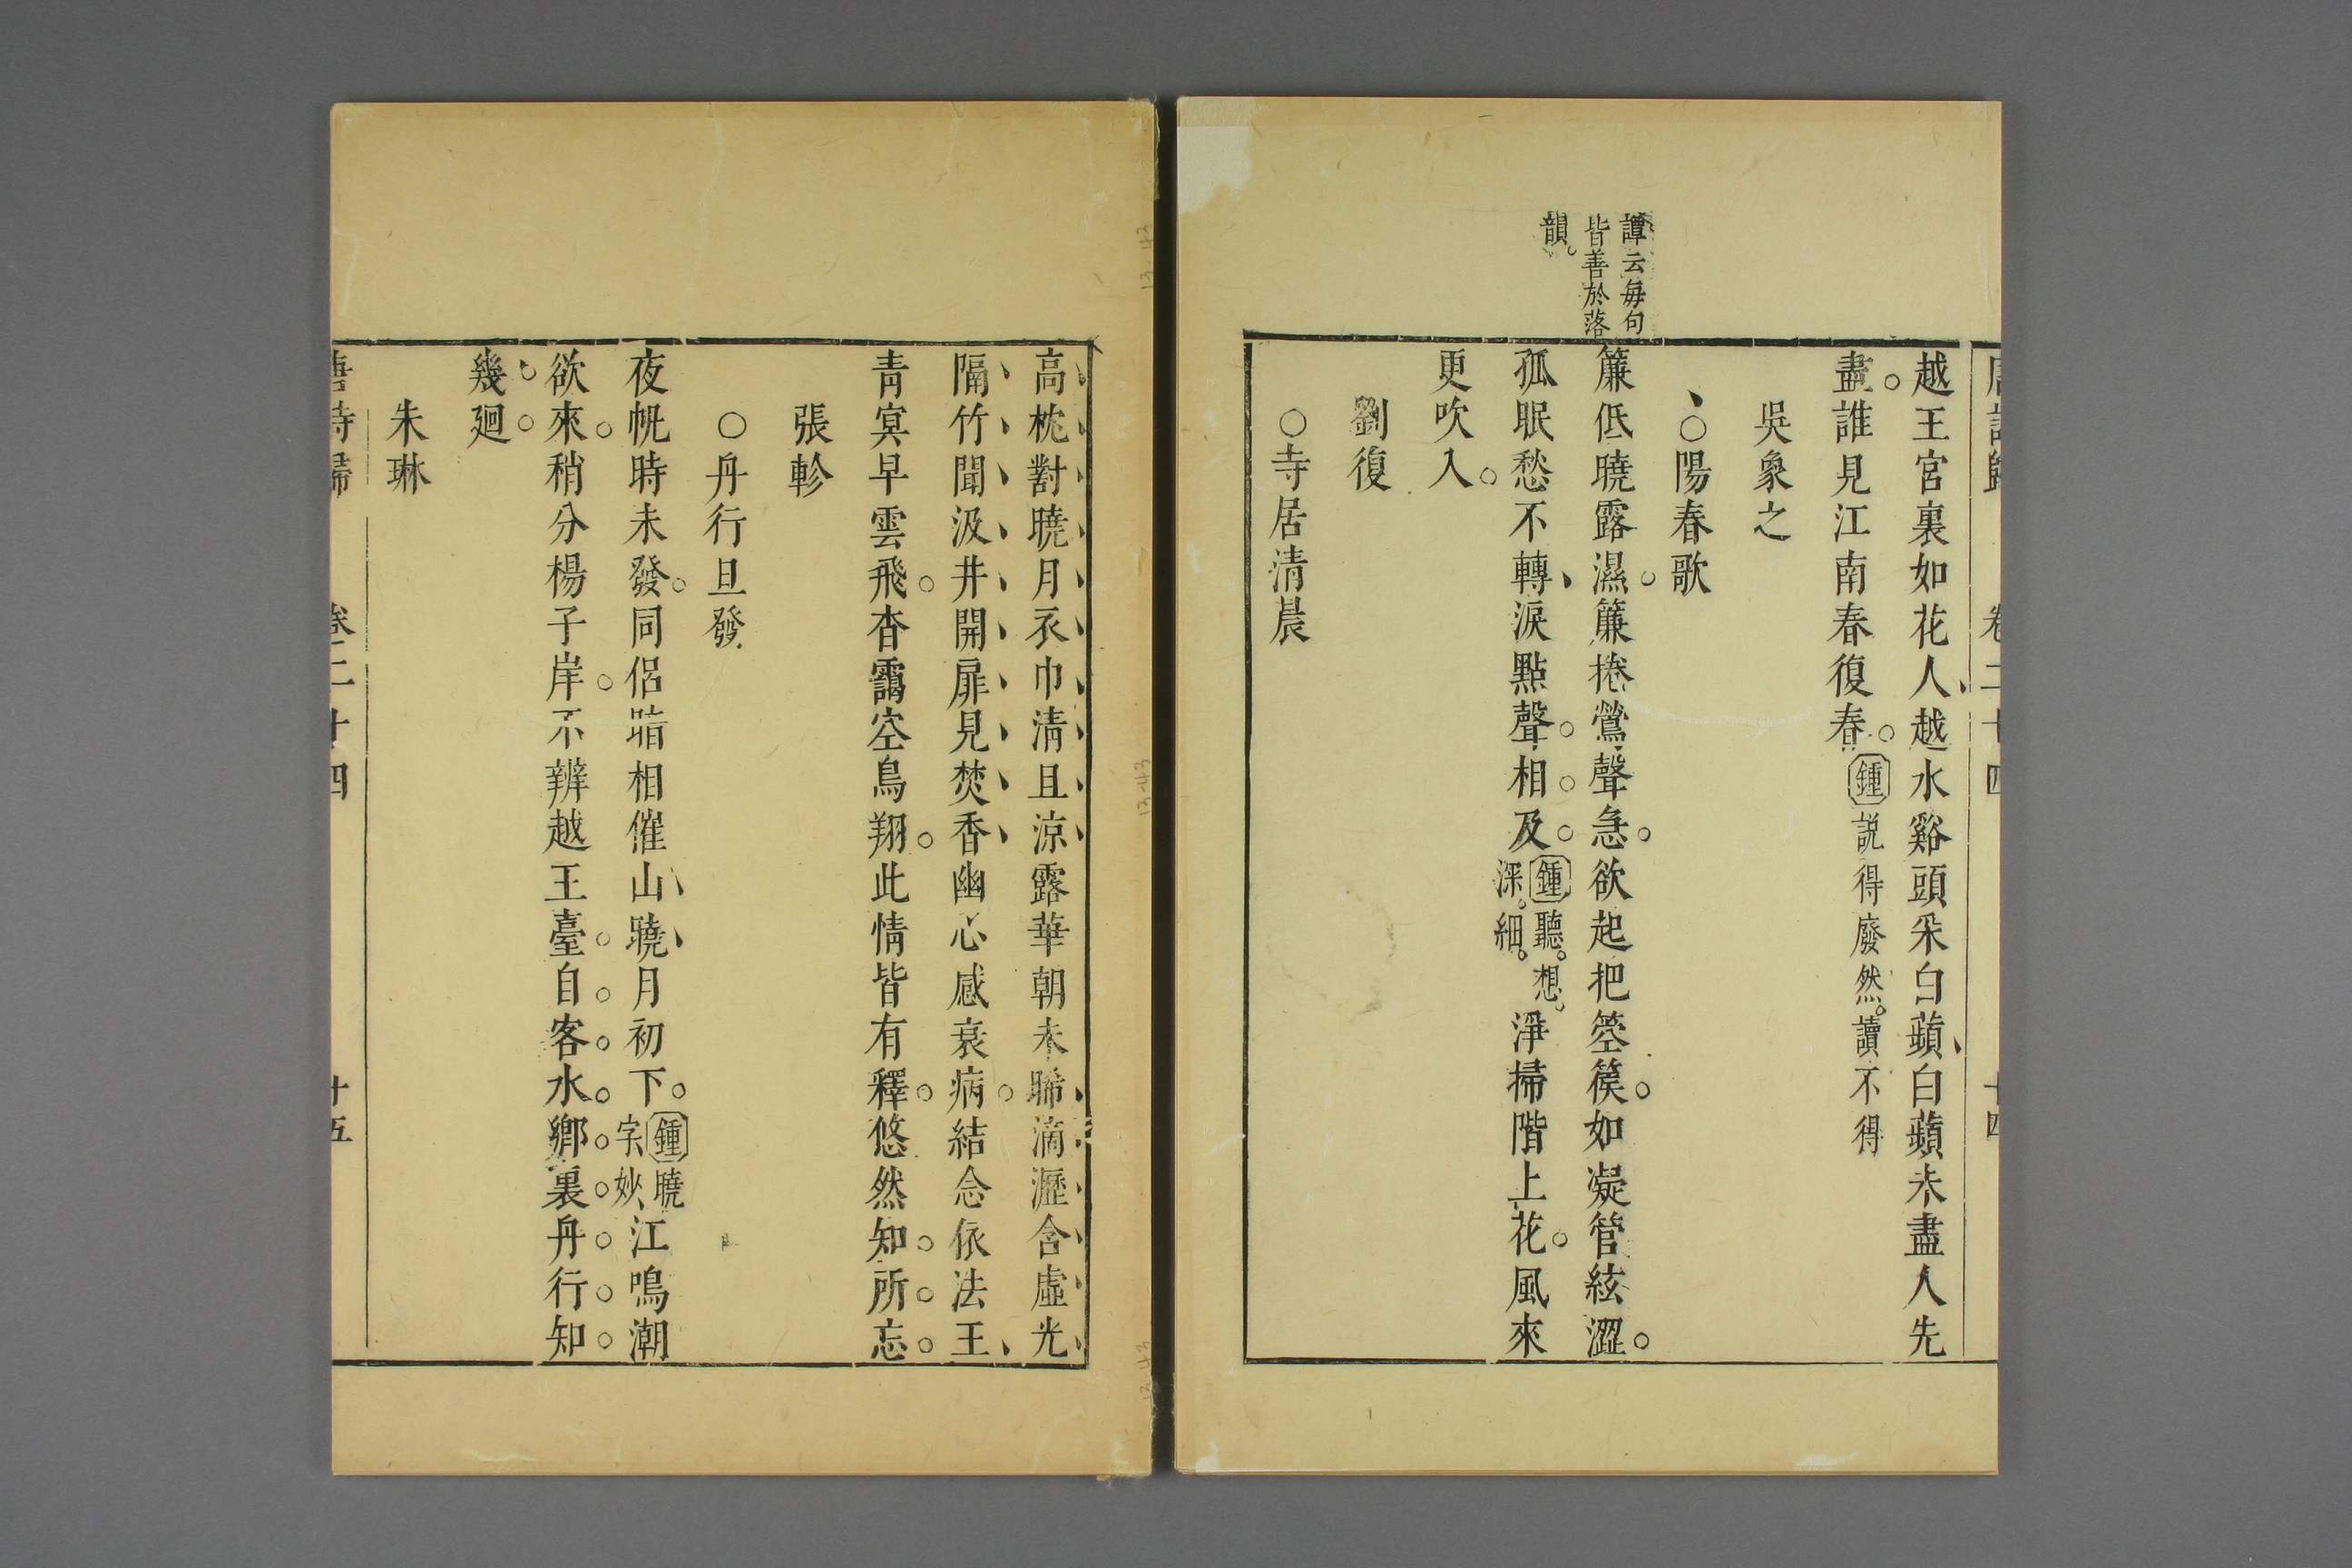 唐詩歸 卷二十四 十四
越王宮裏如花人越水谿頭采白蘋白蘋未盡人先
盡誰見江南春復春鍾説得廢然讀不得
吳象之
○陽春歌
譚云每句
皆善於落
韻
簾低曉露濕簾捲鶯聲急欲起把箜篌如凝管絃澀
孤眠愁不轉淚點聲相及鍾聽想深細淨掃階上花風來
更吹入
劉復
○寺居清晨
高枕對曉月衣巾清且涼露華朝未晞滴瀝含虛光
隔竹聞汲井開扉見焚香幽心感衰病結念依法王
青冥早雲飛杳靄空鳥翔此情皆有釋悠然知所忘
張軫
○舟行旦發
夜帆時未發同侶暗相催山曉月初下鍾曉字妙江鳴潮
欲來稍分楊子岸不辨越王臺自客水鄉裏舟行知
幾廻
朱琳
唐詩歸 卷二十四 十五